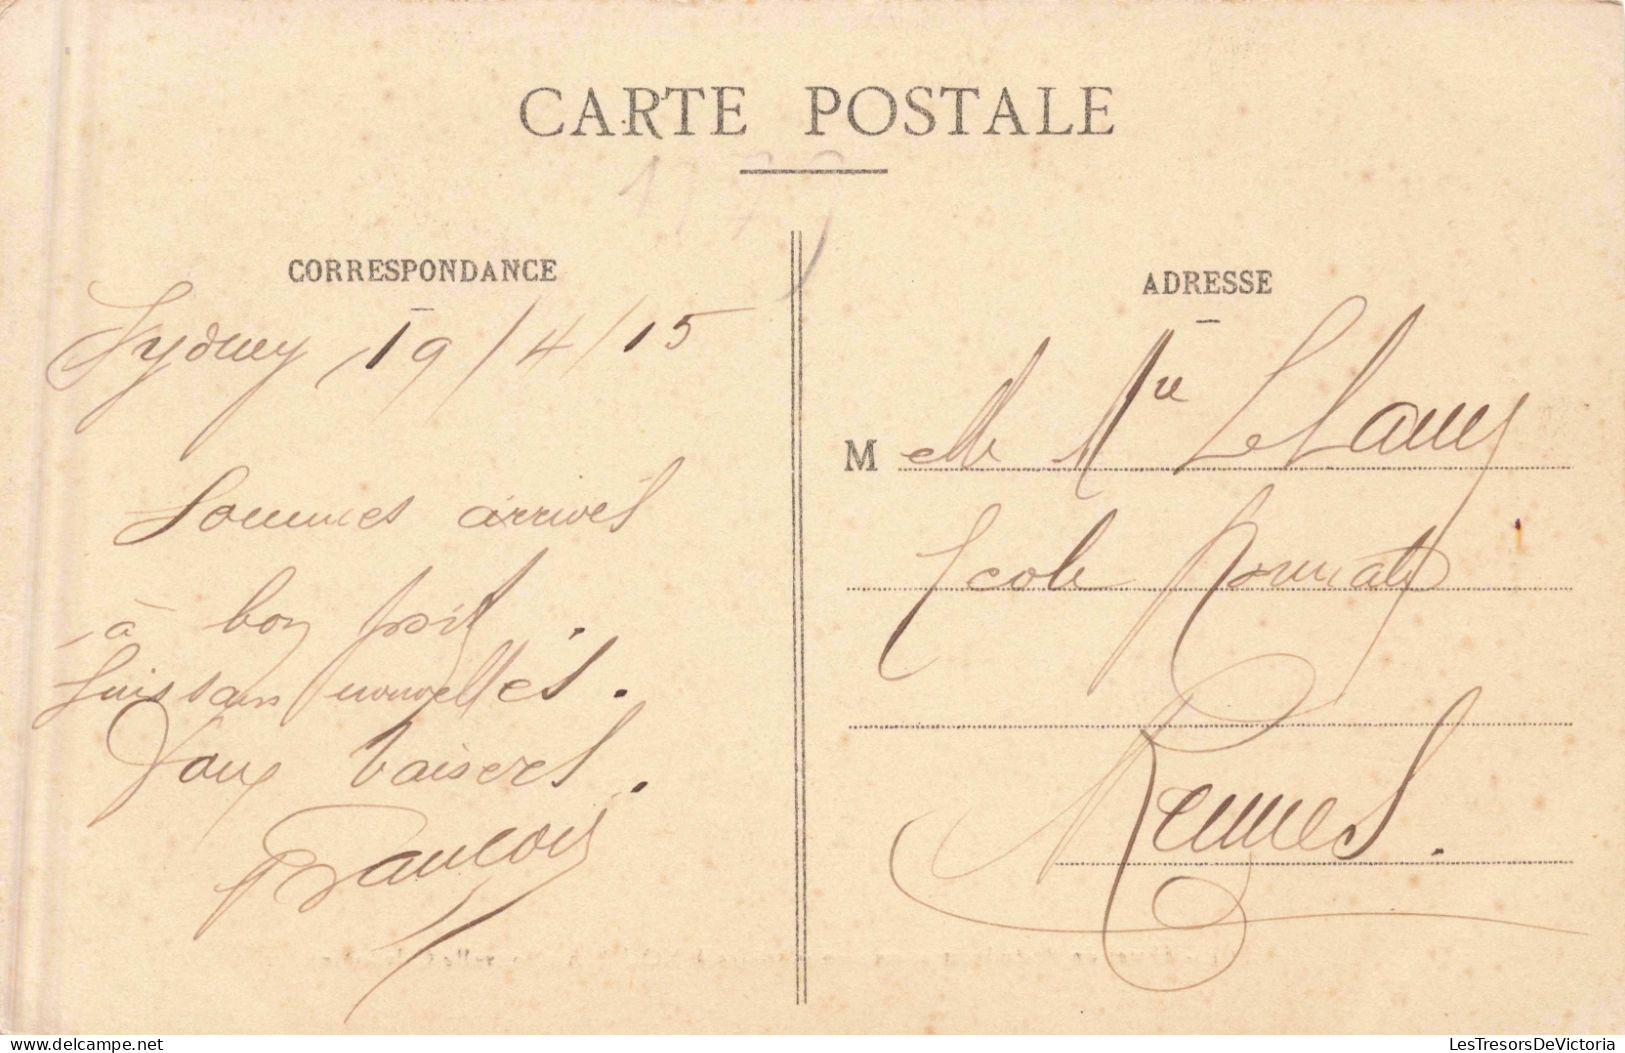 CARTE POSTALE
CORRESPONDANCE
Sydney, 19/4/15
Sommes arrivés
à bon port.
suis sans nouvelles.
Doux baisers.
François
ADRESSE
Melle Mie Le
Ecole Normale
Rennes.
delcampe.net
LesTresorsDeVictoria